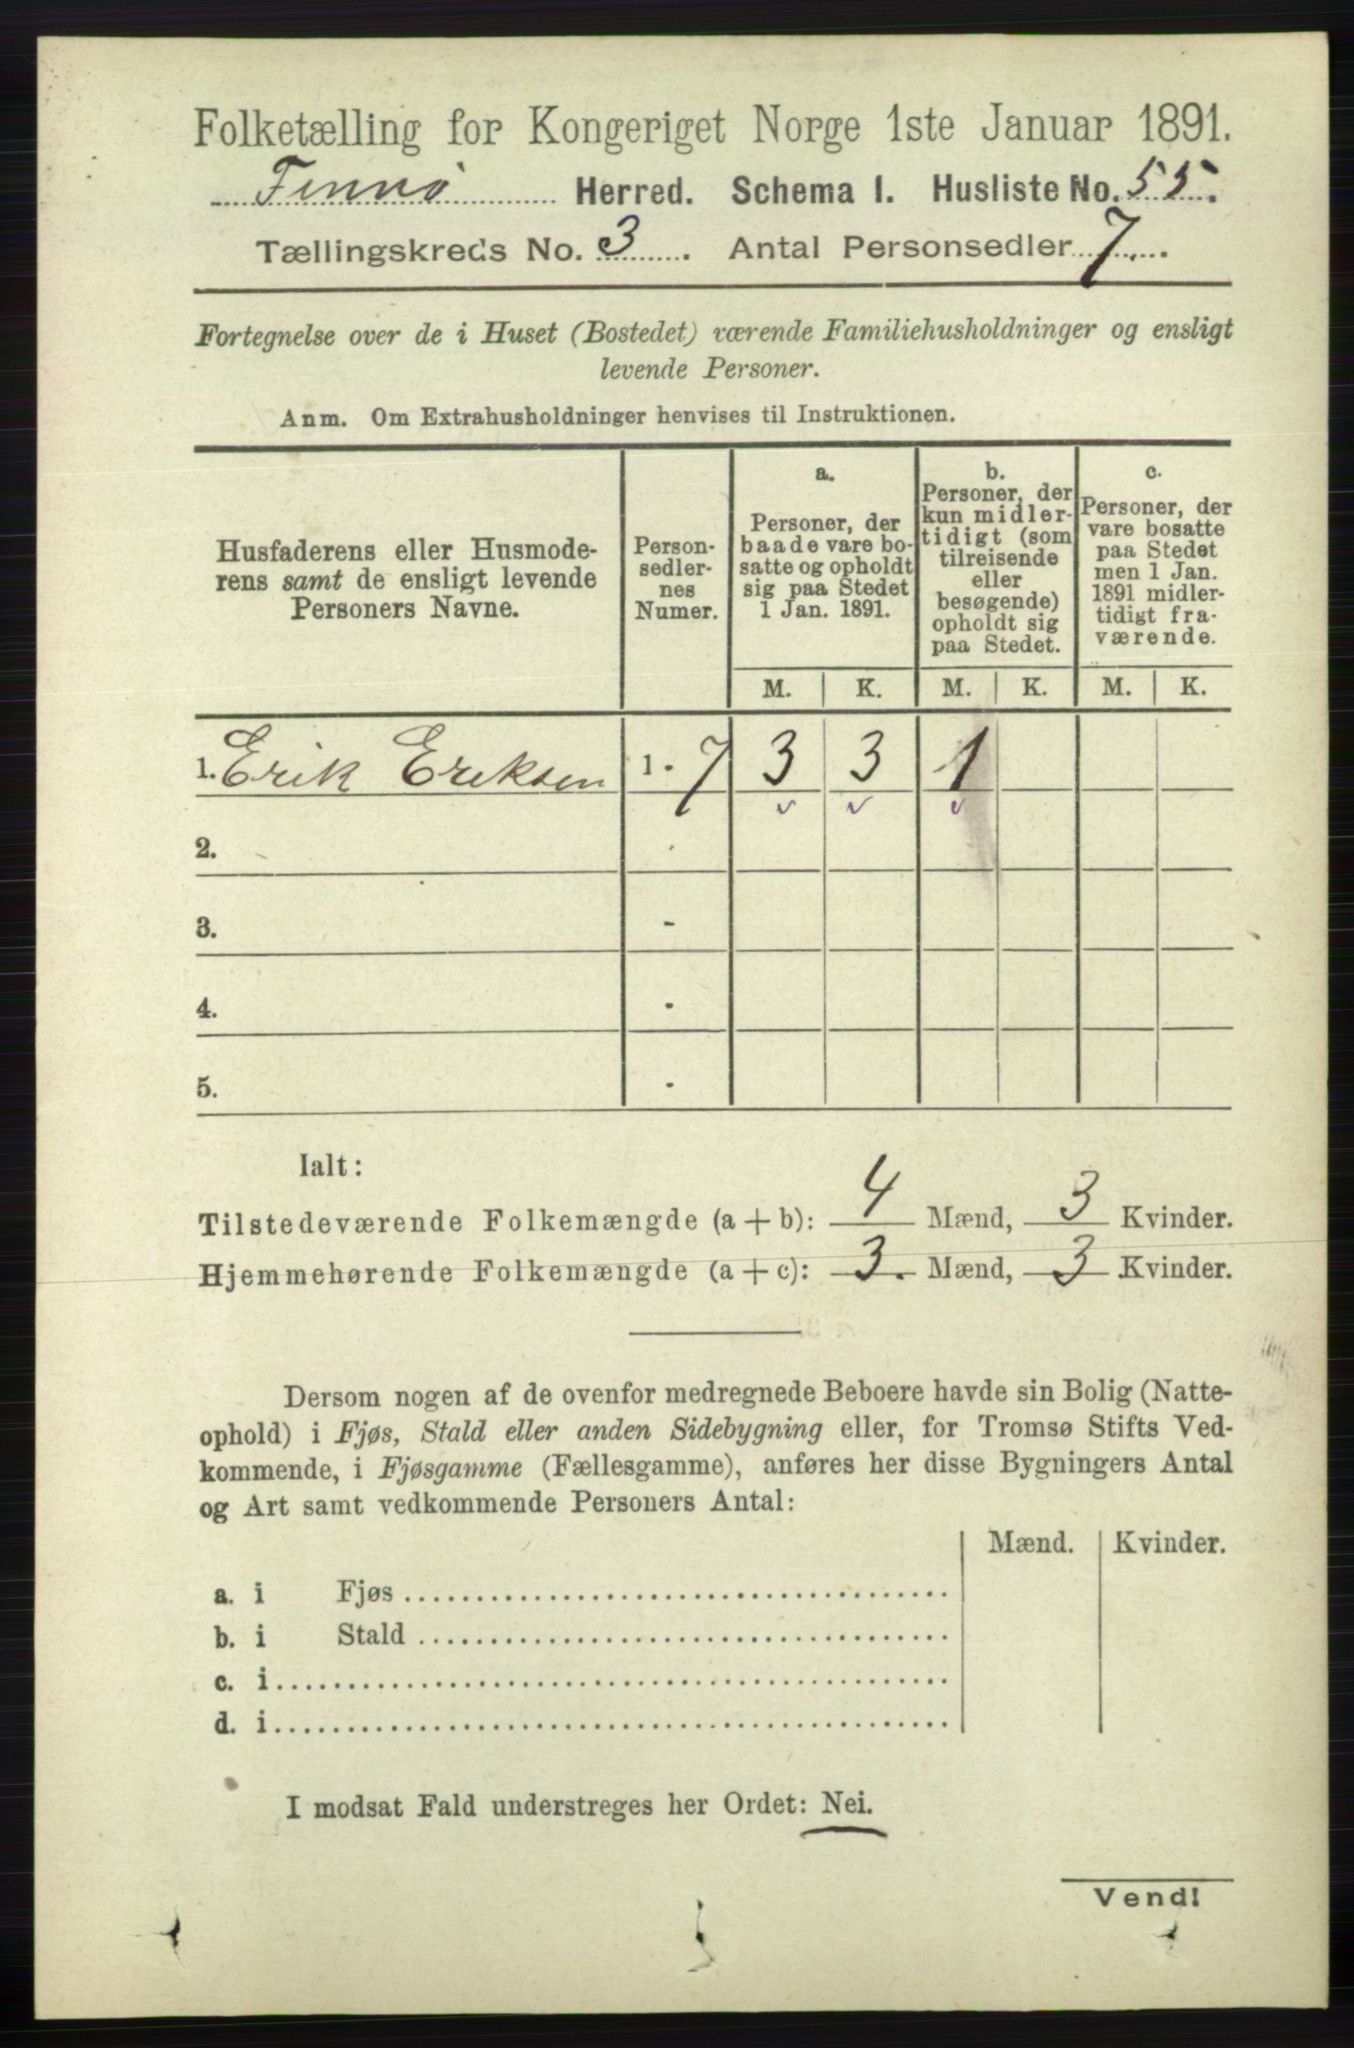 Folketælling for Kongeriget Norge 1ste Januar 1891.
Finnø Herred. Schema I. Husliste No. 55.
Tællingskreds No. 3. Antal Personsedler 7.
Fortegnelse over de i Huset (Bostedet) værende Familiehusholdninger og ensligt
levende Personer.
Anm. Om Extrahusholdninger henvises til Instruktionen.
Husfaderens eller Husmode-
rens samt de ensligt levende
Personers Navne.
Person-
sedler-
nes
Numer.
a.
Personer, der
baade vare bo-
satte og opholdt
sig paa Stedet
1 Jan. 1891.
b.
Personer, der
kun midler-
tidigt (som
tilreisende
eller
besøgende)
opholdt sig
paa Stedet.
c.
Personer, der
vare bosatte
paa Stedet
men 1 Jan.
1891 midler-
tidigt fra-
værende.
M. K. M. K. M. K.
1. Erik Eriksen 1 - 7 3 3 1
2.
3. -
4. -
5. -
Ialt:
Tilstedeværende Folkemængde (a + b): 4 Mænd, 3 Kvinder.
Hjemmehørende Folkemængde (a + c): 3. Mænd, 3 Kvinder.
Dersom nogen af de ovenfor medregnede Beboere havde sin Bolig (Natte-
ophold) i Fjøs, Stald eller anden Sidebygning eller, for Tromsø Stifts Ved-
kommende, i Fjøsgamme (Fællesgamme), anføres her disse Bygningers Antal
og Art samt vedkommende Personers Antal:
Mænd. Kvinder.
a. i Fjøs
b. i Stald
c. i
d. i
I modsat Fald understreges her Ordet: Nei.
Vend!